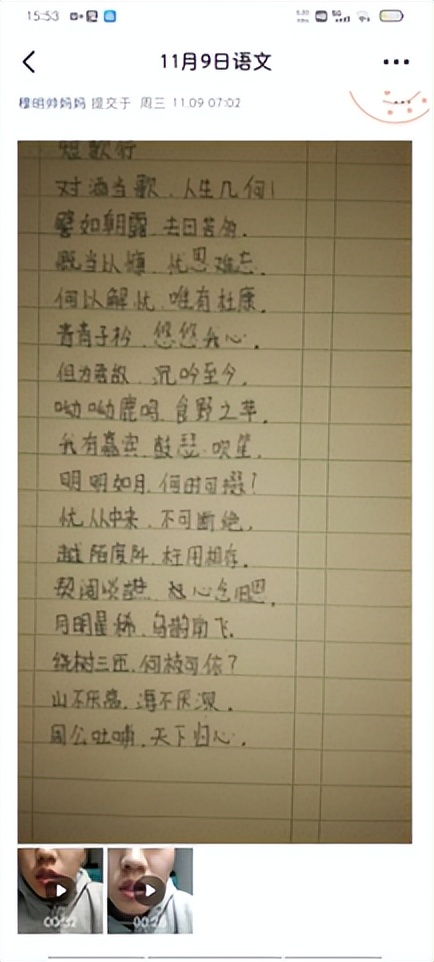 15:53
11月9日语文
穆明帅妈妈 提交于 周三 11.09 07:02
短歌行
对酒当歌,人生几何!
譬如朝露,去日苦多。
慨当以慷,忧思难忘。
何以解忧,唯有杜康。
青青子衿,悠悠我心。
但为君故,沉吟至今。
呦呦鹿鸣,食野之苹。
我有嘉宾,鼓瑟吹笙。
明明如月,何时可掇?
忧从中来,不可断绝。
越陌度阡,枉用相存。
契阔谈讌,心念旧恩。
月明星稀,乌鹊南飞。
绕树三匝,何枝可依?
山不厌高,海不厌深。
周公吐哺,天下归心。
00:32